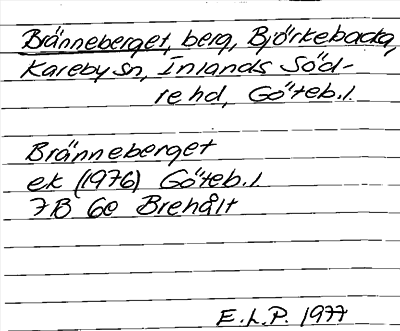 Bränneberget, berg, Björkebacka,
Kareby sn, Inlands Söd-
re hd, Göteb.l.
Bränneberget
ek (1976) Göteb.l.
7B 6e Brehålt
E.L.P. 1977